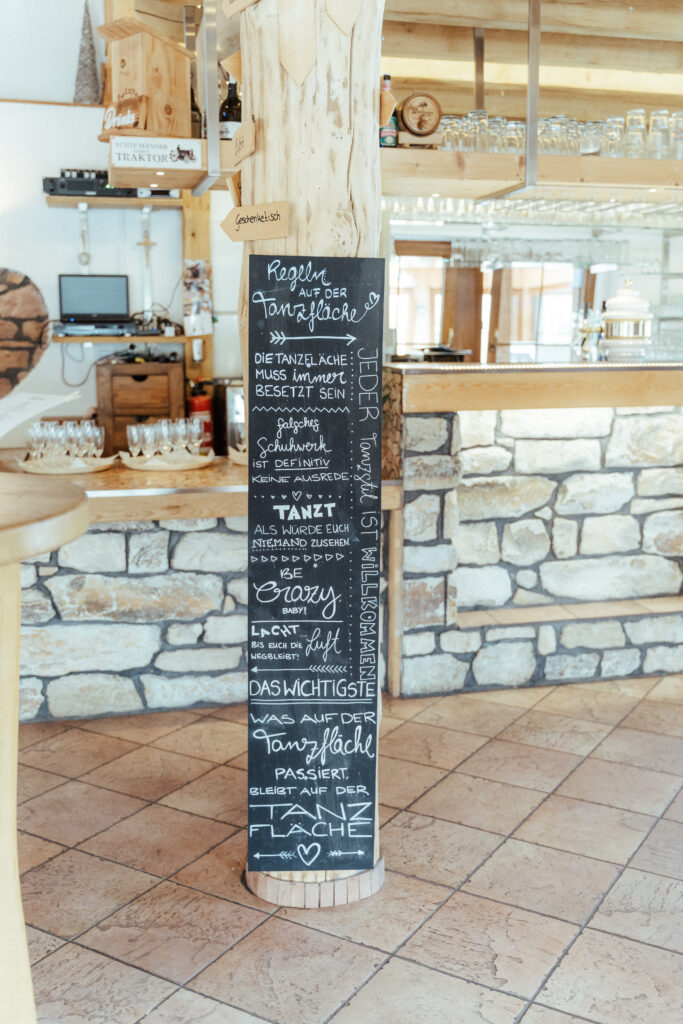 Prinz
ECHTE MÄNNER
TRAKTOR
Geschenketisch
Regeln
AUF DER
Tanzfläche
DIE TANZFLÄCHE
MUSS immer
BESETZT SEIN
falsches
Schuhwerk
IST DEFINITIV
KEINE AUSREDE
TANZT
ALS WÜRDE EUCH
NIEMAND ZUSEHEN
BE
Crazy
BABY!
LACHT
BIS EUCH DIE Luft
WEGBLEIBT!
JEDER Tanzstil IST WILLKOMMEN!
DAS WICHTIGSTE
WAS AUF DER
Tanzfläche
PASSIERT,
BLEIBT AUF DER
TANZ
FLÄCHE